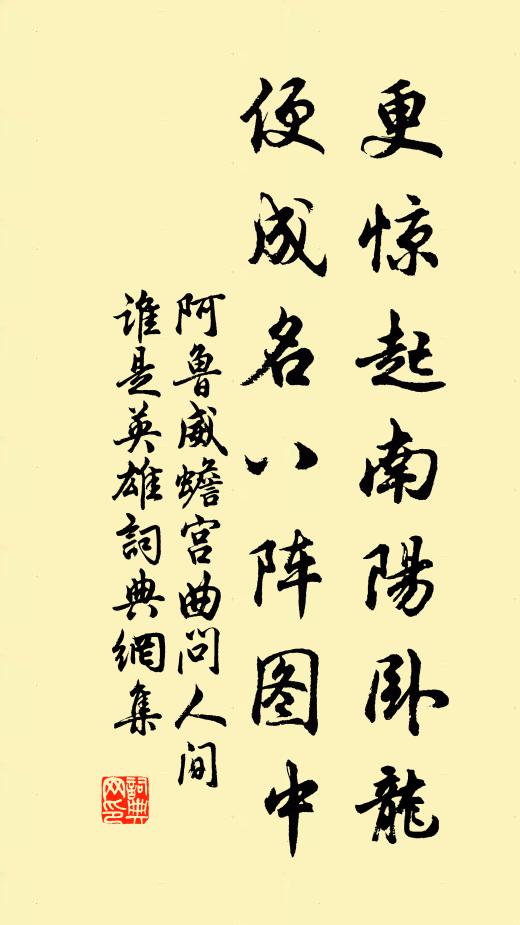 更惊起南陽卧龍
便成名八阵图中
阿魯威蟾宫曲问人间
谁是英雄詞典網集
詞典
网印